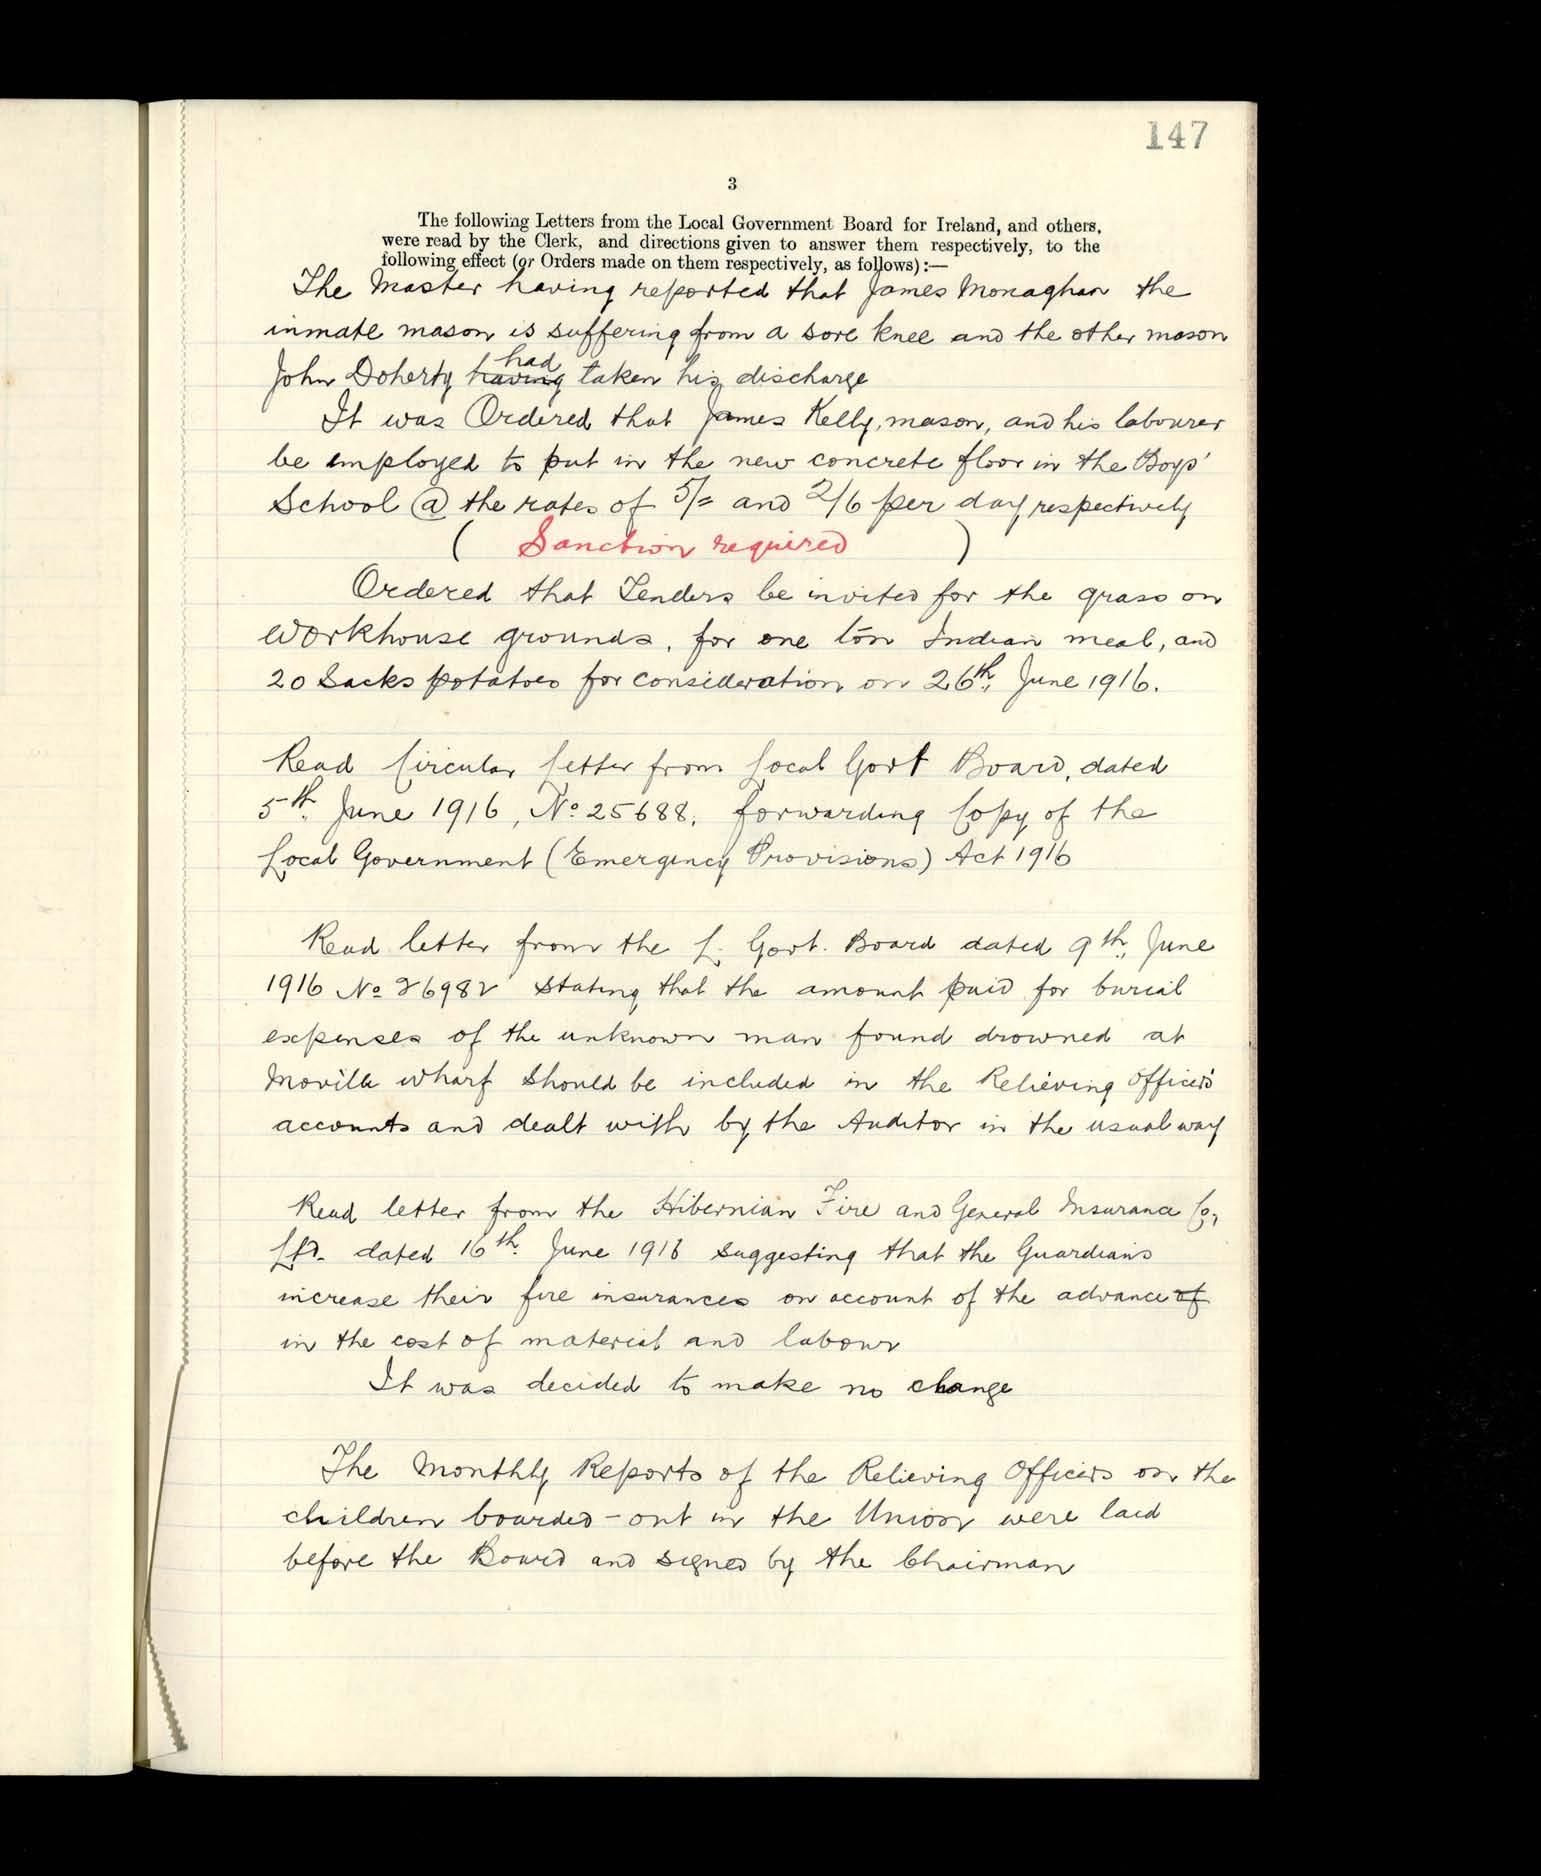 147
3
The following Letters from the Local Government Board for Ireland, and others,
were read by the Clerk, and directions given to answer them respectively, to the
following effect (or Orders made on them respectively, as follows):—
The Master having reported that James Monaghan the
inmate mason is suffering from a sore knee and the other mason
had
John Doherty having taken his discharge
It was Ordered that James Kelly, mason, and his labourer
be employed to put in the new concrete floor in the Boys'
School @ the rates of 5/= and 2/6 per day respectively
( Sanction required )
Ordered that Tenders be invited for the grass on
Workhouse grounds, for one ton Indian meal, and
20 Sacks potatoes for consideration on 26th June 1916.
Read Circular Letter from Local Govt Board, dated
5th June 1916, No 25688, forwarding Copy of the
Local Government (Emergency Provisions) Act 1916
Read letter from the L. Govt. Board dated 9th June
1916 No 26982 Stating that the amount paid for burial
expenses of the unknown man found drowned at
Moville wharf should be included in the Relieving Officer's
accounts and dealt with by the Auditor in the usual way
Read letter from the Hibernian Fire and General Insurance Co,
Ltd. dated 16th June 1916 suggesting that the Guardians
increase their fire insurances on account of the advance of
in the cost of material and labour
It was decided to make no change
The Monthly Reports of the Relieving Officers on the
children boarded-out in the Union were laid
before the Board and signed by the Chairman